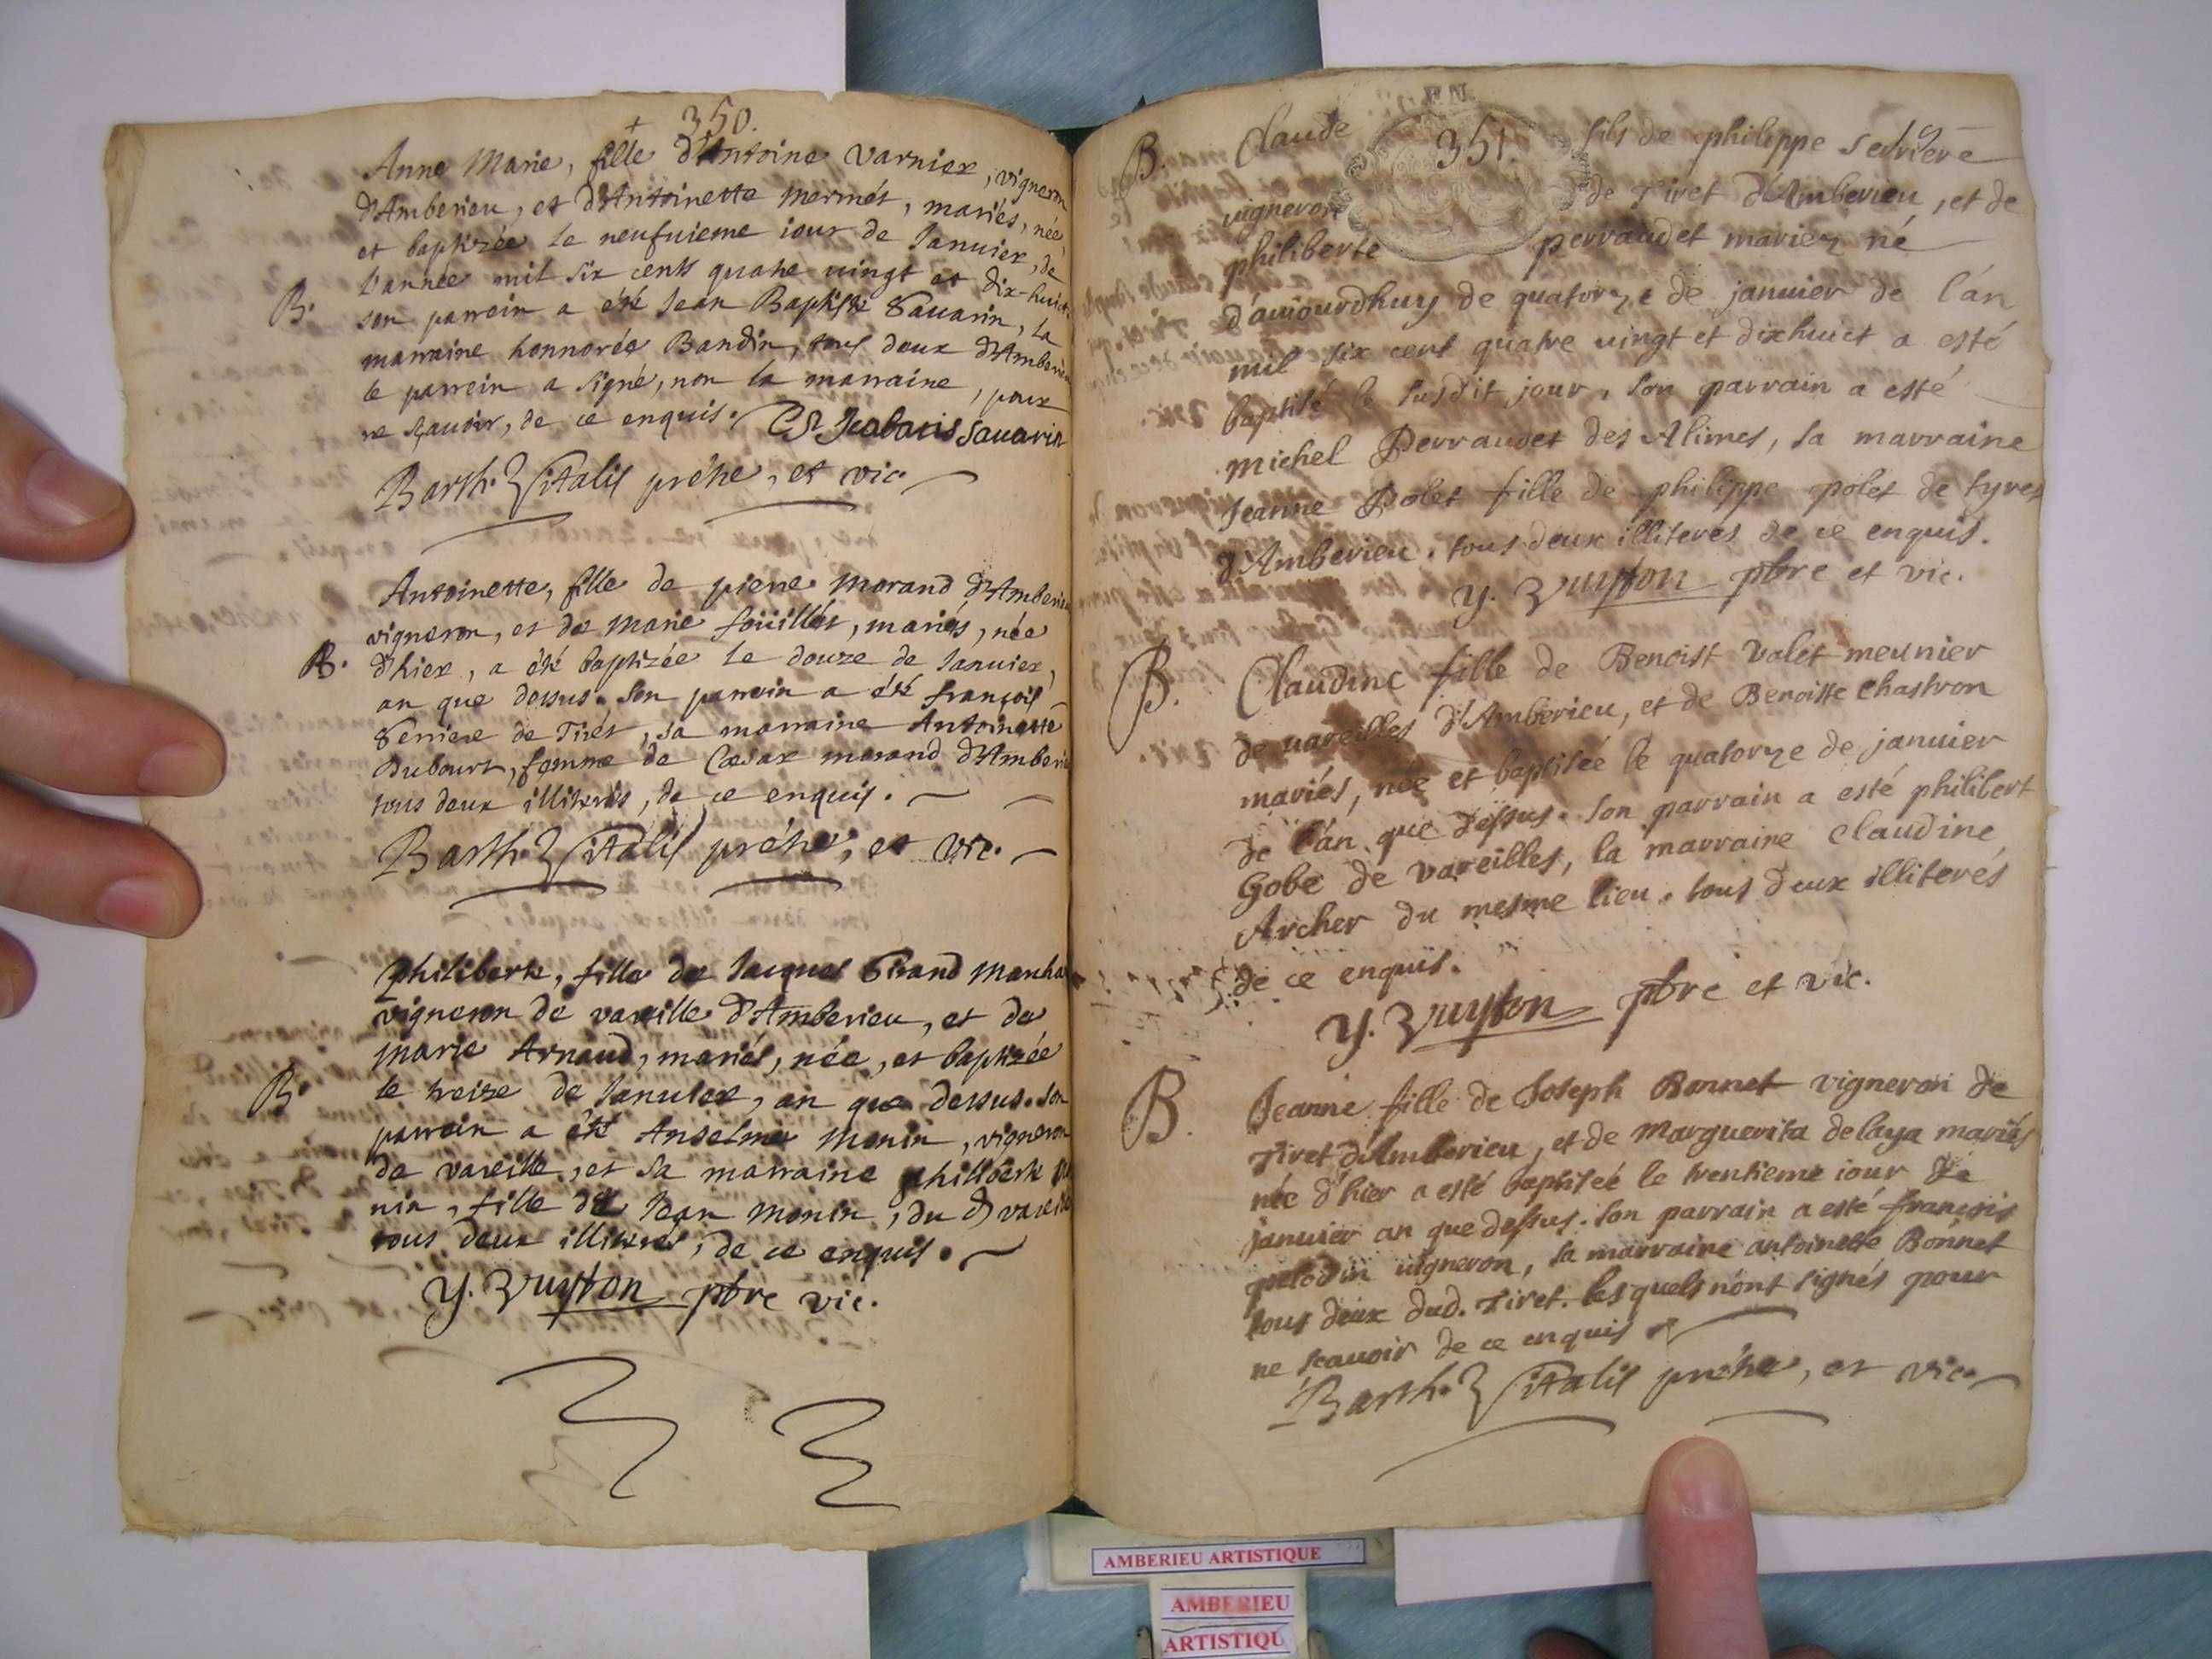 350.
Anne Marie, fille d'Antoine Varnier, vigneron
d'Amberieu, et d'Antoinette Mermét, mariés, née,
et baptizée le neufuieme iour de Ianuier, de
l'année mil six cents quatre uingt et dix-huict
B. son parrain a été Iean Baptiste Sauarin, la
marraine honnorée Bandin, tous deux d'Amberieu
le parrein a signé, non la marraine, pour
ne sçauoir, de ce enquis. Sauarin
Barth. Vitalis prétre, et vic.
Antoinette, fille de pierre Morand d'Amberieu
vigneron, et de Marie foüillét, mariés, née
B. d'hier, a été baptizée le douze de Ianuier,
an que dessus. Son parrain a été françois
de Tirét, sa marraine Antoinette
Dubourt, femme de Cæsar morand d'Amberieu
tous deux illiterés, de ce enquis.
Barth. Vitalis prétre, et vic.
philiberte, fille de Iacques
vigneron de vareille d'Amberieu, et de
Marie Arnaud, mariés, née, et baptizée
B. le treize de Ianuier, an que dessus. Son
parrain a été Anselme Monin, vigneron
de vareille, et sa marraine philiberte
nin, fille de Iean Monin, du d vareille
tous deux illiterés, de ce enquis.
y. Vuyton pbre vic.
351.
B. Claude fils de philippe
vigneron de Tiret d'Amberieu, et de
philiberte perraudet mariez né
d'auiourdhuy de quatorze de januier de l'an
mil six cent quatre uingt et dixhuict a esté
baptisé le susdit jour, son parrain a esté
michel Perraudet des Alimes, sa marraine
Jeanne Polet fille de philippe polet de tyret
d'Amberieu. tous deux illiterés de ce enquis.
y. Vuyton pbre et vic.
B. Claudine fille de Benoist Valet meunier
de uareilles d'Amberieu, et de Benoiste Chastron
mariés, née et baptisée le quatorze de januier
de l'an que dessus. son parrain a esté philibert
Gobe de vareilles, la marraine Claudine
Archer du mesme lieu. tous deux illiterés
de ce enquis.
y. Vuyton pbre et vic.
B. Jeanne fille de Joseph Bonnet vigneron de
Tiret d'Amberieu, et de Marguerita delaya mariés
née d'hier a esté baptiseé le trentieme iour de
januier an que dessus. son parrain a esté françois
pelodin uigneron, sa marraine antoinette Bonnet
tous deux dud. Tiret. lesquels n'ont signés pour
ne scauoir de ce enquis
Barth. Vitalis prétre, et vic.
AMBERIEU ARTISTIQUE
AMBERIEU
ARTISTIQU